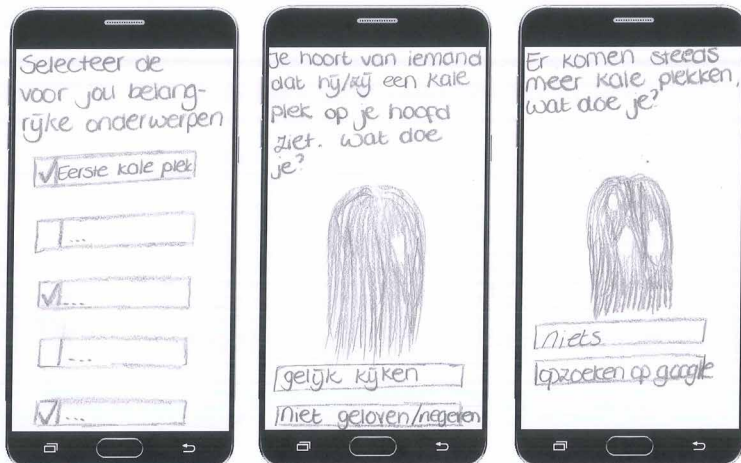 Selecteer de
voor jou belang-
rijke onderwerpen
Eerste kale plek
...
...
...
...
Je hoort van iemand
dat hij/zij een kale
plek op je hoofd
ziet. Wat doe
je?
gelijk kijken
niet geloven/negeren
Er komen steeds
meer kale plekken,
wat doe je?
niets
opzoeken op google